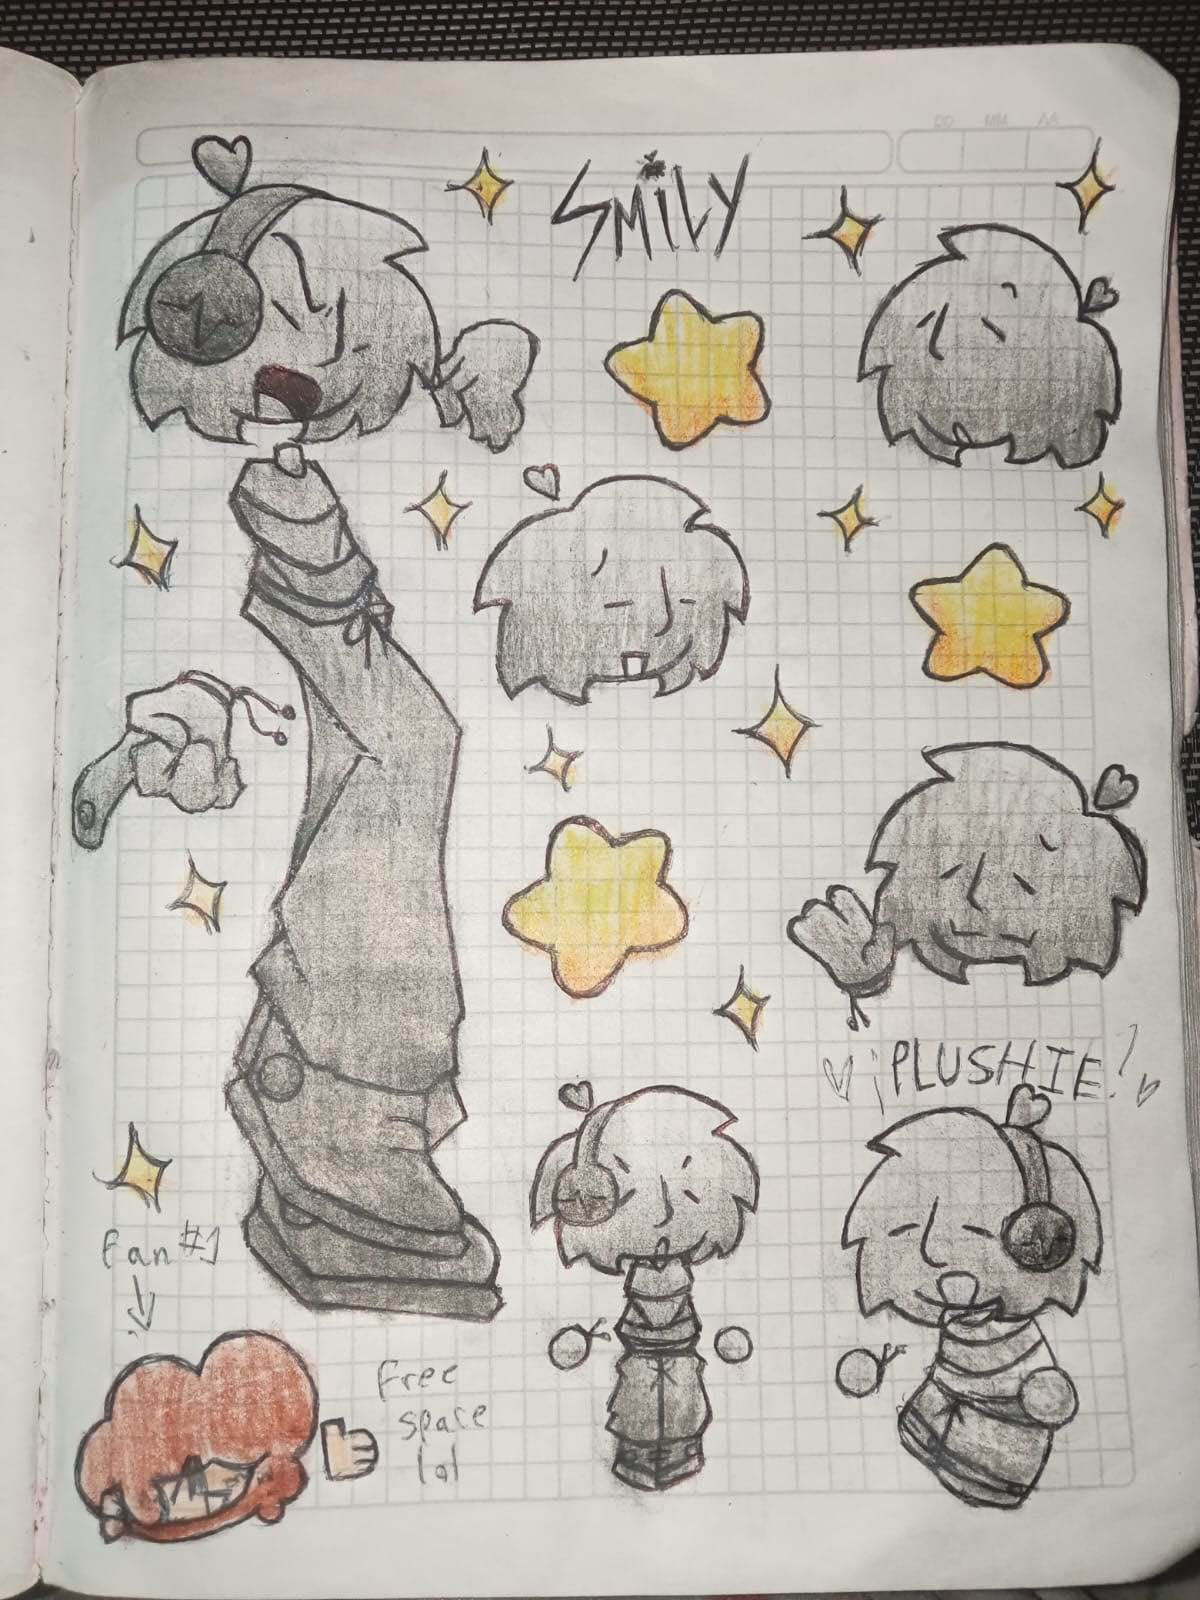 SMiLY
¡PLUSHIE!
Fan #1
Free
space
lol